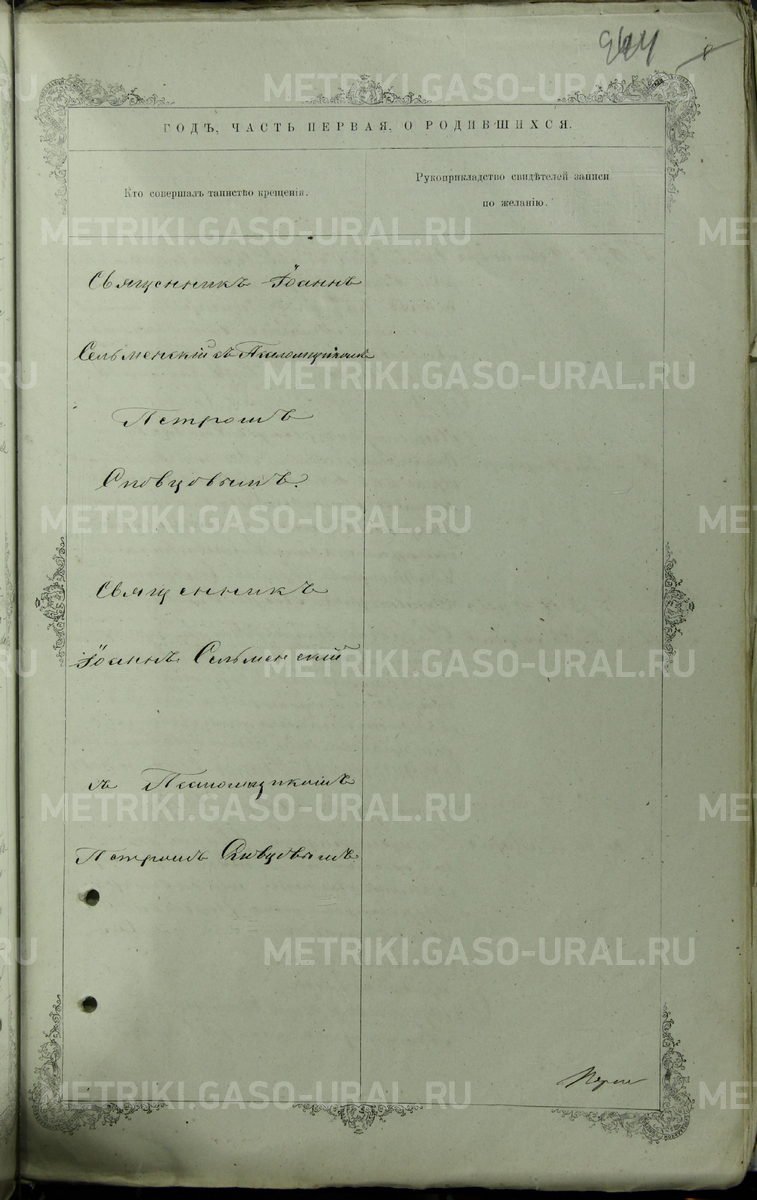 METRIKI.GASO-URAL.RU
ГОДЪ, ЧАСТЬ ПЕРВАЯ, О РОДИВШИХСЯ.
Кто совершалъ таинство крещенія.
Рукоприкладство свидѣтелей записи
по желанію.
Священникъ Іоаннъ
Сельменскій съ Псаломщикомъ
Петромъ
Словцовымъ.
Священникъ
Іоаннъ Сельменскій
съ Псаломщикомъ
Петромъ Словцовымъ